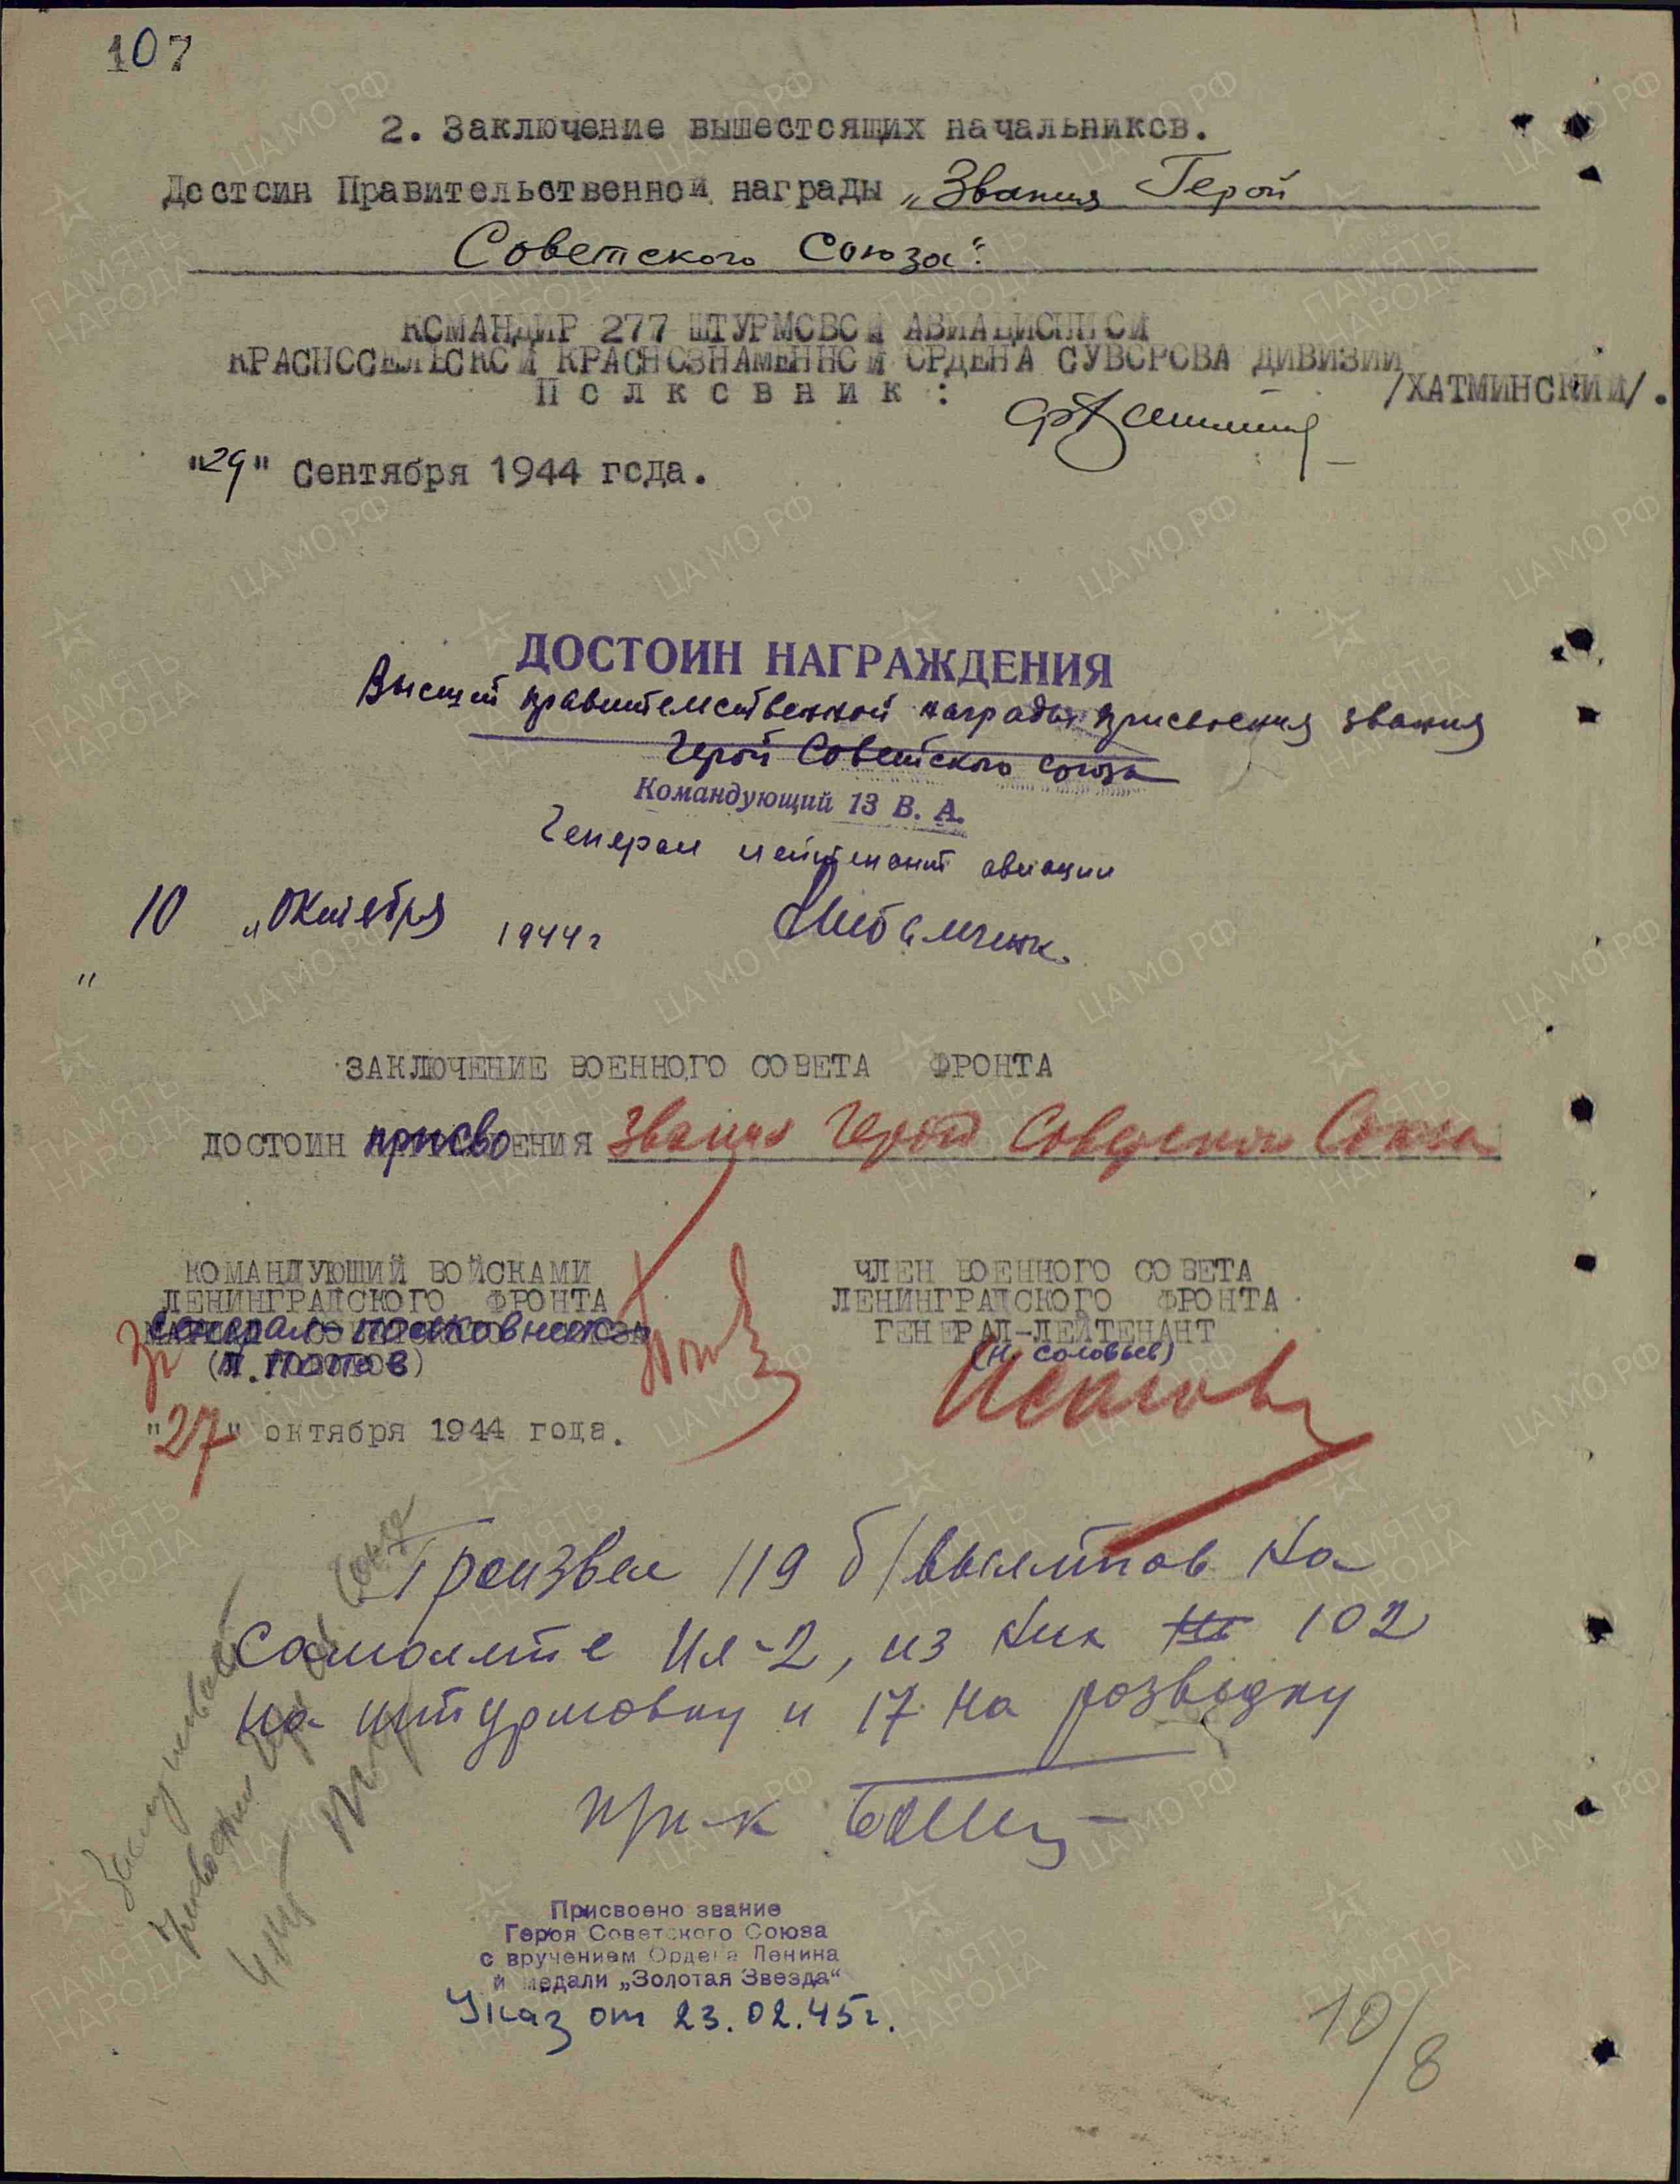 107
2. Заключение вышестоящих начальников.
Достоин Правительственной награды „Звания Герой
Советского Союза".
КОМАНДИР 277 ШТУРМОВОЙ АВИАЦИОННОЙ
КРАСНОСЕЛЬСКОЙ КРАСНОЗНАМЕННОЙ ОРДЕНА СУВОРОВА ДИВИЗИИ
Полковник :
/ХАТМИНСКИЙ/.
"29" Сентября 1944 года.
ДОСТОИН НАГРАЖДЕНИЯ
Высшей правительственной награды присвоения звания
Герой Советского Союза
Командующий 13 В. А.
Генерал лейтенант авиации
10 „Октября 1944 г
"
ЗАКЛЮЧЕНИЕ ВОЕННОГО СОВЕТА ФРОНТА
ДОСТОИН присвоЕНИЯ Звания Герой Советского Союза
КОМАНДУЮЩИЙ ВОЙСКАМИ
ЛЕНИНГРАДСКОГО ФРОНТА
генерал-полковник
Попов)
ЧЛЕН ВОЕННОГО СОВЕТА
ЛЕНИНГРАДСКОГО ФРОНТА
ГЕНЕРАЛ-ЛЕЙТЕНАНТ
(Н. Соловьев)
"27" октября 1944 года.
Произвел 119 б/вылетов на
самолете Ил-2, из них 102
на штурмовку и 17 на розведку
Присвоено звание
Героя Советского Союза
с вручением Ордена Ленина
и медали „Золотая Звезда"
Указ от 23.02.45г.
10/8
ЦА МО РФ
ПАМЯТЬ НАРОДА